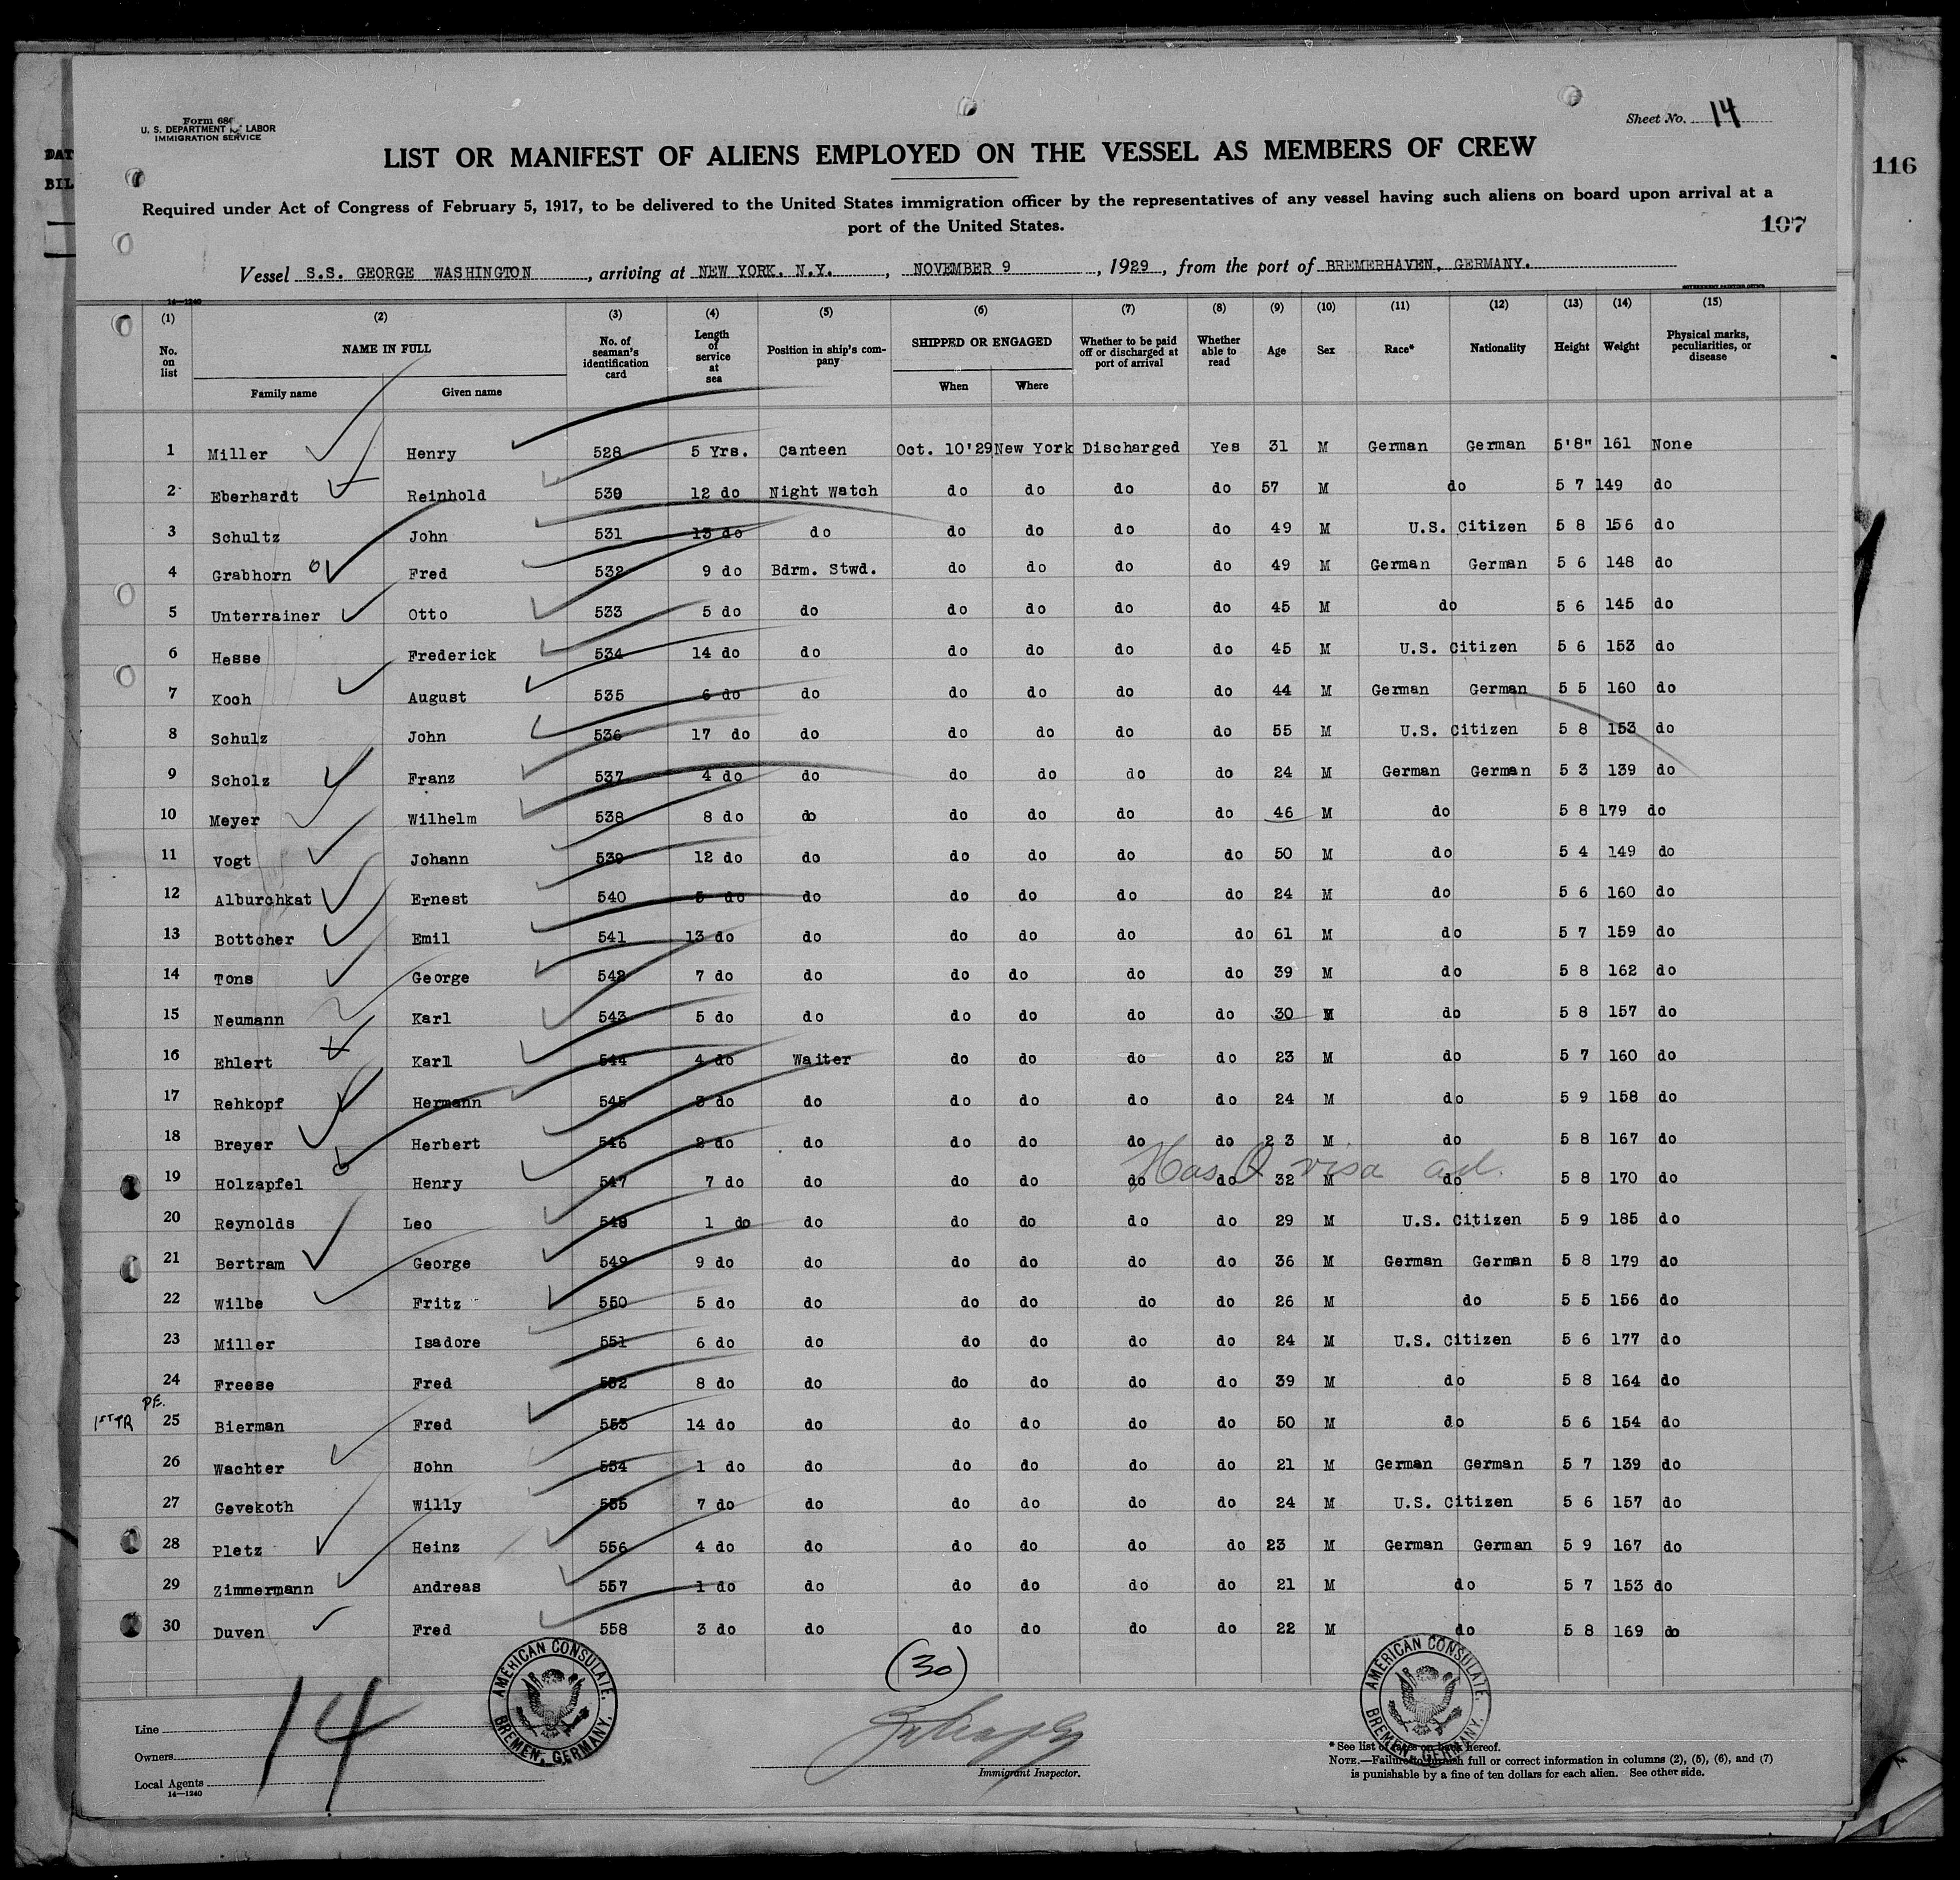 Form 680
U. S. DEPARTMENT OF LABOR
IMMIGRATION SERVICE
Sheet No. 14
LIST OR MANIFEST OF ALIENS EMPLOYED ON THE VESSEL AS MEMBERS OF CREW
116
DAT
BIL
Required under Act of Congress of February 5, 1917, to be delivered to the United States immigration officer by the representatives of any vessel having such aliens on board upon arrival at a
port of the United States.
107
Vessel S.S. GEORGE WASHINGTON, arriving at NEW YORK. N.Y., NOVEMBER 9, 1929, from the port of BREMERHAVEN, GERMANY.
14—1240 GOVERNMENT PRINTING OFFICE
(1) (2) (3) (4) (5) (6) (7) (8) (9) (10) (11) (12) (13) (14) (15)
No. on list NAME IN FULL No. of seaman's identification card Length of service at sea Position in ship's company SHIPPED OR ENGAGED Whether to be paid off or discharged at port of arrival Whether able to read Age Sex Race* Nationality Height Weight Physical marks, peculiarities, or disease
Family name Given name When Where
1 Miller Henry 528 5 Yrs. Canteen Oct. 10'29 New York Discharged Yes 31 M German German 5'8" 161 None
2 Eberhardt Reinhold 530 12 do Night Watch do do do do 57 M do 5 7 149 do
3 Schultz John 531 13 do do do do do do 49 M U.S. Citizen 5 8 156 do
4 Grabhorn Fred 532 9 do Bdrm. Stwd. do do do do 49 M German German 5 6 148 do
5 Unterrainer Otto 533 5 do do do do do do 45 M do 5 6 145 do
6 Hesse Frederick 534 14 do do do do do do 45 M U.S. Citizen 5 6 153 do
7 Koch August 535 6 do do do do do do 44 M German German 5 5 160 do
8 Schulz John 536 17 do do do do do do 55 M U.S. Citizen 5 8 153 do
9 Scholz Franz 537 4 do do do do do do 24 M German German 5 3 139 do
10 Meyer Wilhelm 538 8 do do do do do do 46 M do 5 8 179 do
11 Vogt Johann 539 12 do do do do do do 50 M do 5 4 149 do
12 Alburchkat Ernest 540 5 do do do do do do 24 M do 5 6 160 do
13 Bottcher Emil 541 13 do do do do do do 61 M do 5 7 159 do
14 Tons George 542 7 do do do do do do 39 M do 5 8 162 do
15 Neumann Karl 543 5 do do do do do do 30 M do 5 8 157 do
16 Ehlert Karl 544 4 do Waiter do do do do 23 M do 5 7 160 do
17 Rehkopf Hermann 545 3 do do do do do do 24 M do 5 9 158 do
18 Breyer Herbert 546 2 do do do do do do 23 M do 5 8 167 do
Has Q visa
19 Holzapfel Henry 547 7 do do do do do do 32 M do 5 8 170 do
20 Reynolds Leo 548 1 do do do do do do 29 M U.S. Citizen 5 9 185 do
21 Bertram George 549 9 do do do do do do 36 M German German 5 8 179 do
22 Wilbe Fritz 550 5 do do do do do do 26 M do 5 5 156 do
23 Miller Isadore 551 6 do do do do do do 24 M U.S. Citizen 5 6 177 do
24 Freese Fred 552 8 do do do do do do 39 M do 5 8 164 do
P.E.
1ST TR 25 Bierman Fred 553 14 do do do do do do 50 M do 5 6 154 do
26 Wachter Hohn 554 1 do do do do do do 21 M German German 5 7 139 do
27 Gevekoth Willy 555 7 do do do do do do 24 M U.S. Citizen 5 6 157 do
28 Pletz Heinz 556 4 do do do do do do 23 M German German 5 9 167 do
29 Zimmermann Andreas 557 1 do do do do do do 21 M do 5 7 153 do
30 Duven Fred 558 3 do do do do do do 22 M do 5 8 169 do
(30)
14
AMERICAN CONSULATE. BREMEN, GERMANY.
AMERICAN CONSULATE. BREMEN, GERMANY.
Line
Owners
Local Agents
14—1240
Immigrant Inspector.
* See list of races on back hereof.
NOTE.—Failure to furnish full or correct information in columns (2), (5), (6), and (7)
is punishable by a fine of ten dollars for each alien. See other side.